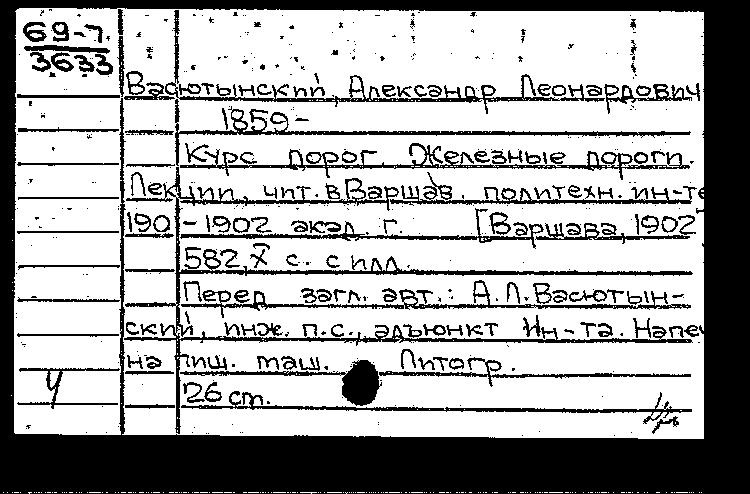 69-7.
3633
Васютынский, Александр Леонардович
1859-
Курс дорог. Железные дороги.
Лекции, чит. в Варшав. политехн. ин-те
190 -1902 акад. г. [Варшава, 1902]
582, X с. с илл.
Перед загл. авт.: А.Л.Васютын-
ский, инж. п.с., адъюнкт Ин-та. Напеч
на пиш. маш. Литогр.
26 см.